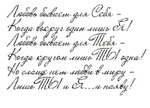 Любовь бывает для Себя -
Когда вокруг один лишь Я!
Любовь бывает для Тебя -
Когда кругом лишь ТЫ одна!
Но слаще нет любви в миру -
Лишь ТЫ и Я...и наяву!